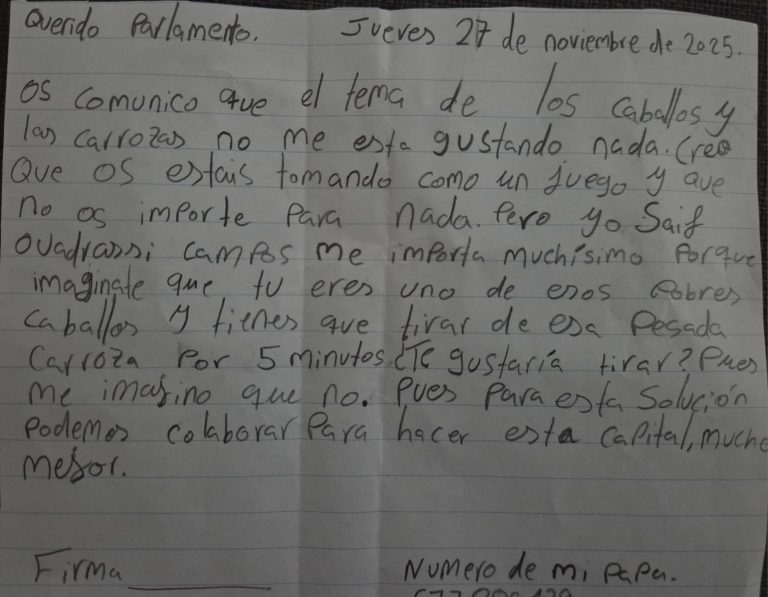 Querido Parlamento. Jueves 27 de noviembre de 2025.
os comunico que el tema de los caballos y
las carrozas no me esta gustando nada. Creo
Que os estais tomando como un juego y que
no os importe para nada. Pero yo Saif
Ouadrassi campos me importa muchísimo Porque
imaginate que tu eres uno de esos Pobres
caballos y tienes que tirar de esa Pesada
Carroza Por 5 minutos ¿Te gustaría tirar? Pues
me imagino que no. Pues Para esta Solución
Podemos colaborar Para hacer esta capital, mucho
mejor.
Firma Numero de mi PaPa.